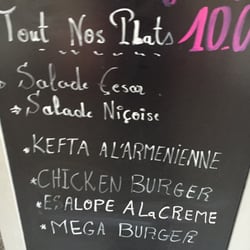 Tout Nos Plats 10.0
Salade Cesar
Salade Niçoise
*KEFTA A L'ARMENIENNE
*CHICKEN BURGER
*ESALOPE A La CREME
*MEGA BURGER